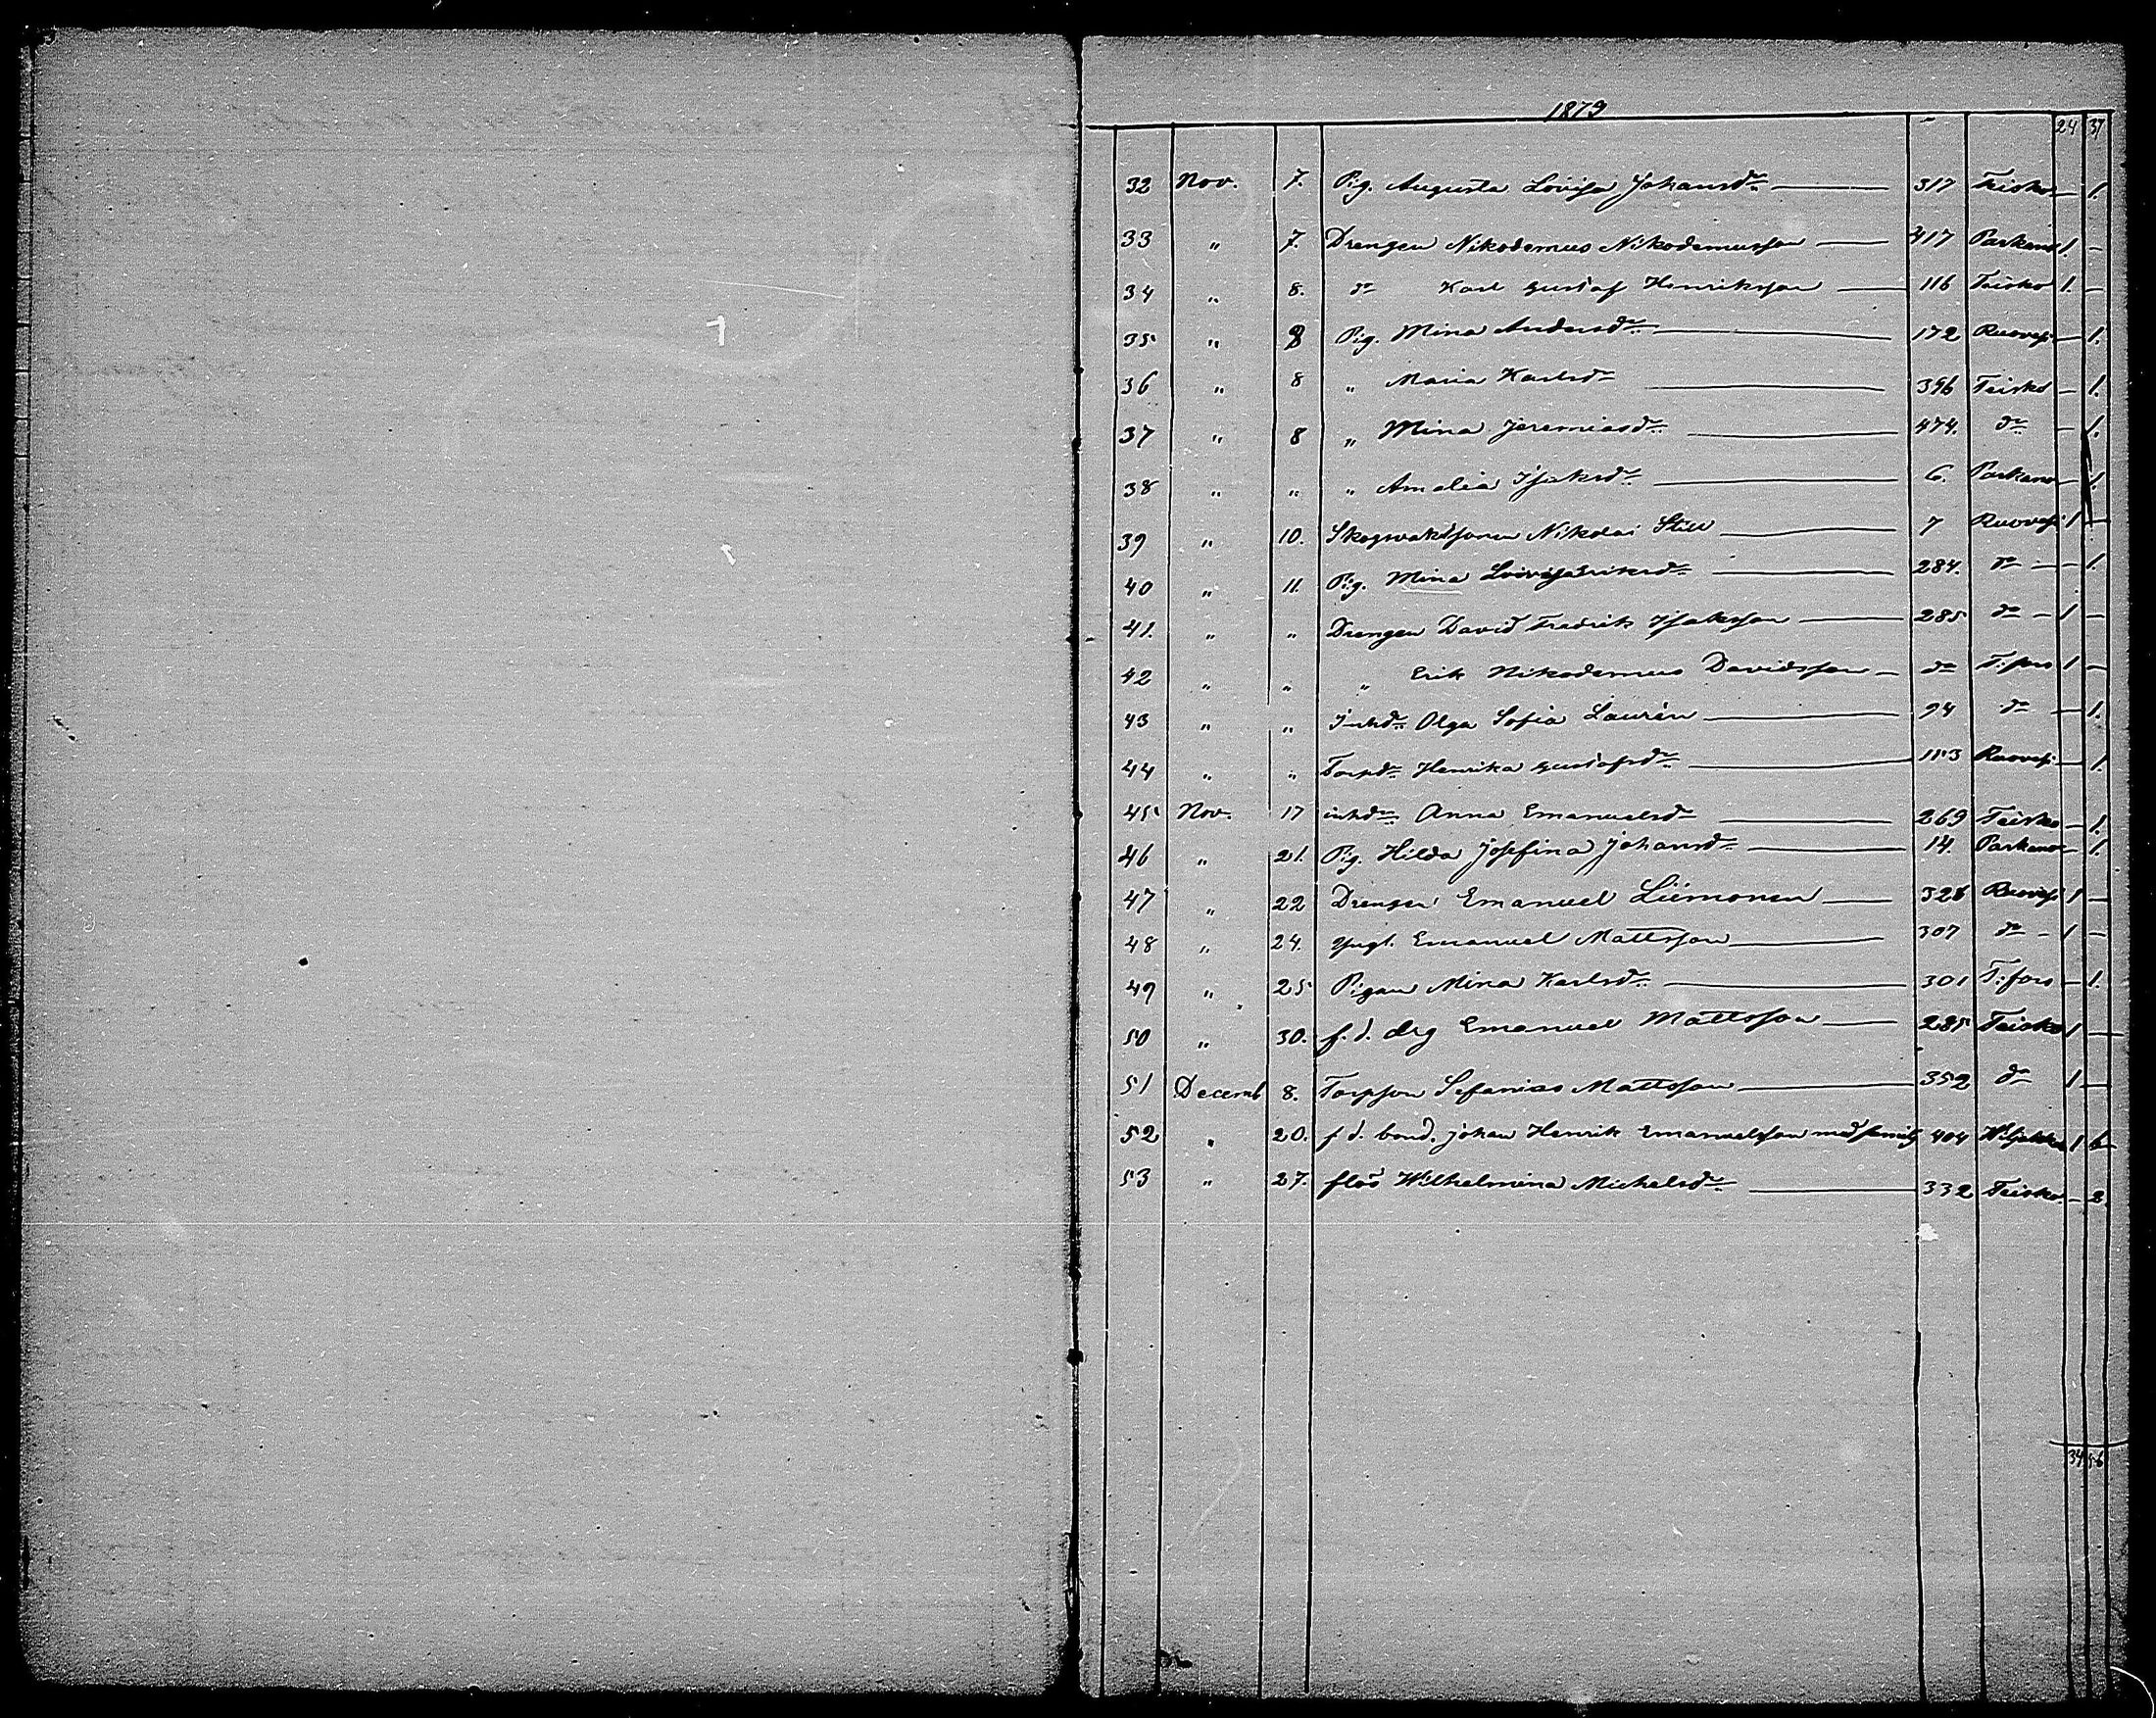 1879
24 37
32 Nov. 7. Pig. Augusta Lovisa Johansdr 317 Teisko — 1.
33 " 7. Drengen Nikodemus Nikodemusson 417 Parkano 1. —
34 " 8. do Karl Gustaf Henriksson 116 Teisko 1. —
35 " 8 Pig. Mina Andersdr 172 Ruovesi — 1.
36 " 8 " Maria Karlsdr 396 Teisko — 1.
37 " 8 " Mina Jeremiasdr 474. do — 1.
38 " " " Amalia Isaksdr 6. Parkano — 1.
39 " 10. Skogvaktssonen Nikolai Still 7 Ruovesi 1 —
40 " 11. Pig. Mina Lovisa Eriksdr 284. do — 1.
41. " " Drengen David Fredrik Isaksson 285 do 1 —
42 " " " Erik Nikodemus Davidsson do T.fors 1 —
43 " " Inhdr Olga Sofia Laurén 94 do — 1.
44 " " Torpdr Henrika Gustafsdr 153 Ruovesi — 1.
45 Nov. 17 inhdr Anna Emanuelsdr 269 Teisko — 1.
46 " 21. Pig. Hilda Josefina Johansdr 14. Parkano — 1.
47 " 22 Drengen Emanuel Liimonen 328 Ruovesi 1 —
48 " 24. Yngl. Emanuel Mattsson 307 do — 1 —
49 " 25 Pigan Mina Karlsdr 301 T.fors — 1.
50 " 30. f. d. drg Emanuel Mattsson 285 Teisko 1 —
51 Decemb 8. Torpson Sefanias Mattsson 352 do 1 —
52 " 20. f d. bond. Johan Henrik Emanuelsson med familj 404 1 6
53 " 27. Wilhelmina Michelsdr 332 Teisko — 2.
34 56